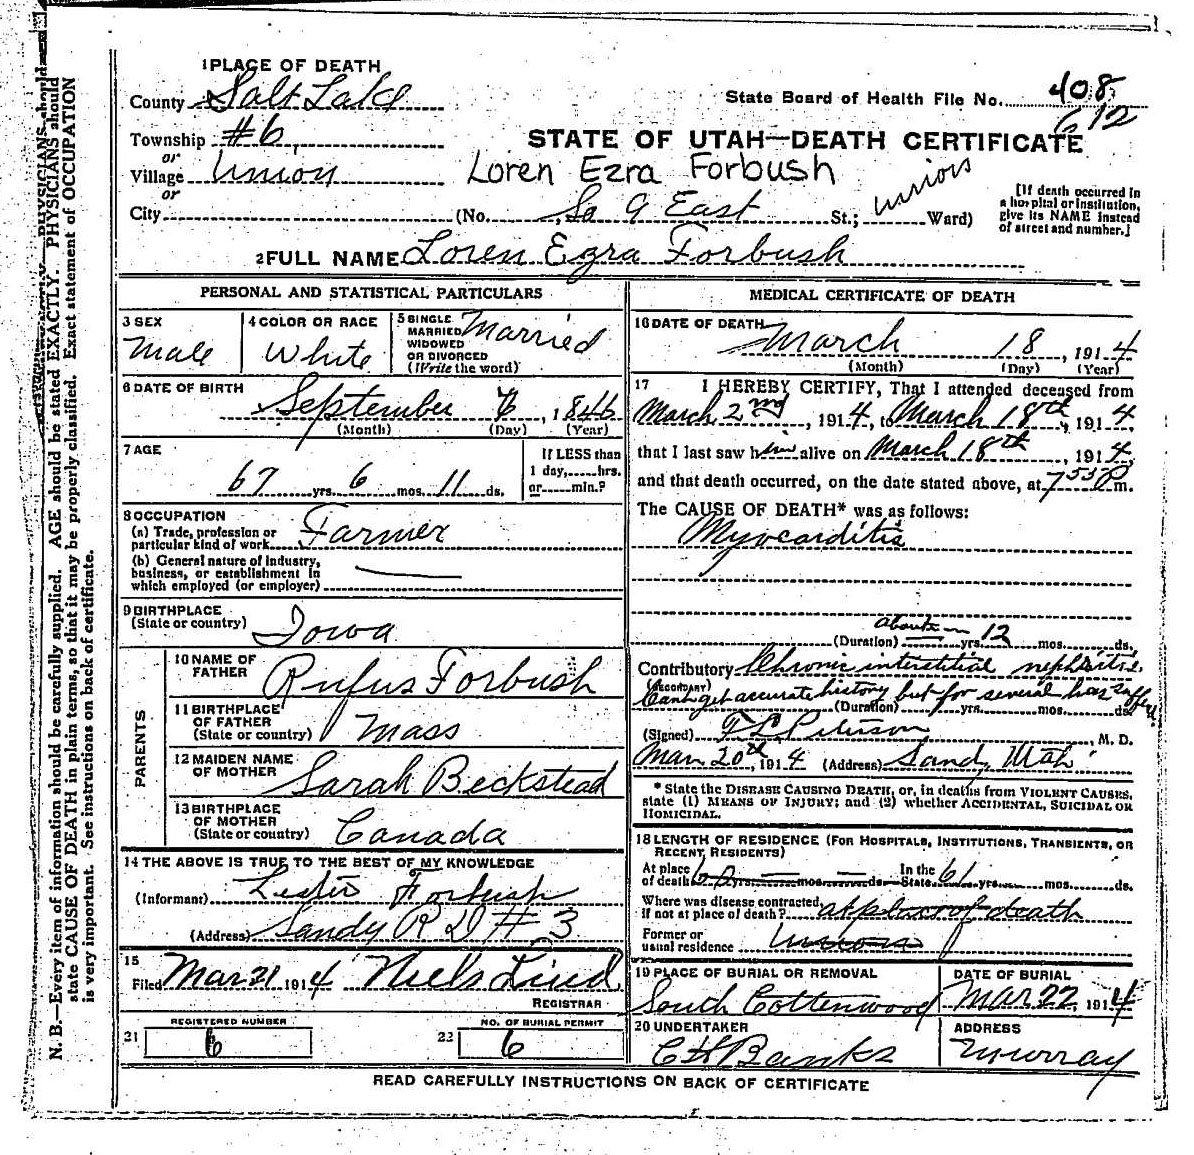 1 PLACE OF DEATH
County Salt Lake
State Board of Health File No. 408
612
Township #6
or
STATE OF UTAH—DEATH CERTIFICATE
Village Union
Loren Ezra Forbush
or
City (No. So 9 East St.; Union Ward)
[If death occurred in a hospital or institution, give its NAME instead of street and number.]
2 FULL NAME Loren Ezra Forbush
PERSONAL AND STATISTICAL PARTICULARS
3 SEX
Male
4 COLOR OR RACE
White
5 SINGLE
MARRIED
WIDOWED
OR DIVORCED
(Write the word)
Married
6 DATE OF BIRTH
September 6, 1846
(Month) (Day) (Year)
7 AGE
67 yrs. 6 mos. 11 ds.
If LESS than
1 day,......hrs.
or......min.?
8 OCCUPATION
(a) Trade, profession or
particular kind of work Farmer
(b) General nature of industry,
business, or establishment in
which employed (or employer)
9 BIRTHPLACE
(State or country) Iowa
PARENTS
10 NAME OF
FATHER Rufus Forbush
11 BIRTHPLACE
OF FATHER
(State or country) Mass
12 MAIDEN NAME
OF MOTHER Sarah Beckstead
13 BIRTHPLACE
OF MOTHER
(State or country) Canada
14 THE ABOVE IS TRUE TO THE BEST OF MY KNOWLEDGE
(Informant) Lester Forbush
(Address) Sandy R D # 3
15
Filed Mar 21 1914 Niels Lind
REGISTRAR
21 REGISTERED NUMBER
6
22 NO. OF BURIAL PERMIT
6
MEDICAL CERTIFICATE OF DEATH
16 DATE OF DEATH
March 18, 1914
(Month) (Day) (Year)
17 I HEREBY CERTIFY, That I attended deceased from
March 2nd, 1914, to March 18th, 1914
that I last saw him alive on March 18th, 1914
and that death occurred, on the date stated above, at 7 55 P m.
The CAUSE OF DEATH* was as follows:
Myocarditis
about
(Duration) yrs. 12 mos. ds.
Contributory Chronic interstitial nephritis
(SECONDARY)
Cant get accurate history but for several has suffer
(Duration) yrs. mos. ds.
(Signed) F L Peterson, M. D.
Mar. 20th, 1914 (Address) Sandy Utah
* State the DISEASE CAUSING DEATH, or, in deaths from VIOLENT CAUSES,
state (1) MEANS OF INJURY; and (2) whether ACCIDENTAL, SUICIDAL OR
HOMICIDAL.
18 LENGTH OF RESIDENCE (FOR HOSPITALS, INSTITUTIONS, TRANSIENTS, OR
RECENT RESIDENTS)
At place In the
of death yrs. mos. ds. State 61 yrs. mos. ds.
Where was disease contracted,
if not at place of death? at place of death
Former or
usual residence Union
19 PLACE OF BURIAL OR REMOVAL
South Cottonwood
DATE OF BURIAL
Mar 22, 1914
20 UNDERTAKER
C H Banks
ADDRESS
Murray
READ CAREFULLY INSTRUCTIONS ON BACK OF CERTIFICATE
N. B.—Every item of information should be carefully supplied. AGE should be stated EXACTLY. PHYSICIANS should
state CAUSE OF DEATH in plain terms, so that it may be properly classified. Exact statement of OCCUPATION
is very important. See instructions on back of certificate.